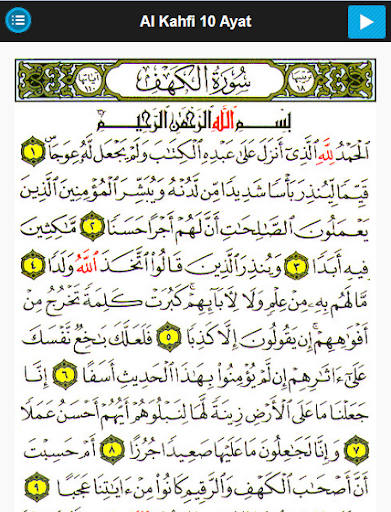 Al Kahfi 10 Ayat
سُورَةُ الْكَهْفِ
بِسْمِ اللَّهِ الرَّحْمَٰنِ الرَّحِيمِ
الْحَمْدُ لِلَّهِ الَّذِي أَنزَلَ عَلَىٰ عَبْدِهِ الْكِتَابَ وَلَمْ يَجْعَل لَّهُ عِوَجًا ١
قَيِّمًا لِّيُنذِرَ بَأْسًا شَدِيدًا مِّن لَّدُنْهُ وَيُبَشِّرَ الْمُؤْمِنِينَ الَّذِينَ
يَعْمَلُونَ الصَّالِحَاتِ أَنَّ لَهُمْ أَجْرًا حَسَنًا ٢ مَّاكِثِينَ
فِيهِ أَبَدًا ٣ وَيُنذِرَ الَّذِينَ قَالُوا اتَّخَذَ اللَّهُ وَلَدًا ٤
مَّا لَهُم بِهِ مِنْ عِلْمٍ وَلَا لِآبَائِهِمْ كَبُرَتْ كَلِمَةً تَخْرُجُ مِنْ
أَفْوَاهِهِمْ إِن يَقُولُونَ إِلَّا كَذِبًا ٥ فَلَعَلَّكَ بَاخِعٌ نَّفْسَكَ
عَلَىٰ آثَارِهِمْ إِن لَّمْ يُؤْمِنُوا بِهَٰذَا الْحَدِيثِ أَسَفًا ٦ إِنَّا
جَعَلْنَا مَا عَلَى الْأَرْضِ زِينَةً لَّهَا لِنَبْلُوَهُمْ أَيُّهُمْ أَحْسَنُ عَمَلًا
٧ وَإِنَّا لَجَاعِلُونَ مَا عَلَيْهَا صَعِيدًا جُرُزًا ٨ أَمْ حَسِبْتَ
أَنَّ أَصْحَابَ الْكَهْفِ وَالرَّقِيمِ كَانُوا مِنْ آيَاتِنَا عَجَبًا ٩